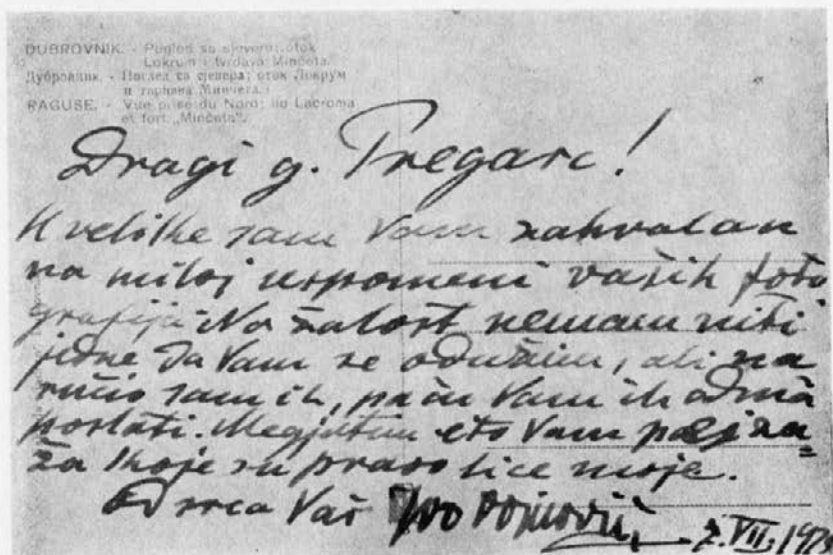 DUBROVNIK. - Pogled sa sjevera; otok
Lokrum i tvrđava Minčeta.
Дубровник. - Поглед са сјевера; оток Локрум
и тврђава Минчета.
RAGUSE. - Vue prise du Nord; île Lacroma
et fort „Minčeta“.
Dragi g. Pregarc!
U velike sam Vam zahvalan
na miloj uspomeni vaših foto
grafija. Na žalost nemam niti
jedne da Vam se odužim, ali na
ručio sam ih, pa ću Vam ih odma
poslati. Megjutim eto Vam pejza=
ža koje su pravo lice moje.
Od srca Vaš Ivo Vojnović
7. VII. 192